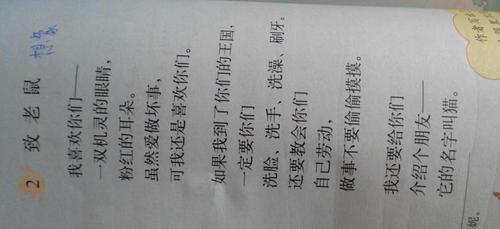 2 致老鼠
想象
我喜欢你们——
一双机灵的眼睛，
粉红的耳朵。
虽然爱做坏事，
可我还是喜欢你们。
如果我到了你们的王国，
一定要你们
洗脸、洗手、洗澡、刷牙。
还要教会你们
自己劳动，
做事不要偷偷摸摸。
我还要给你们
介绍个朋友——
它的名字叫猫。
妮。